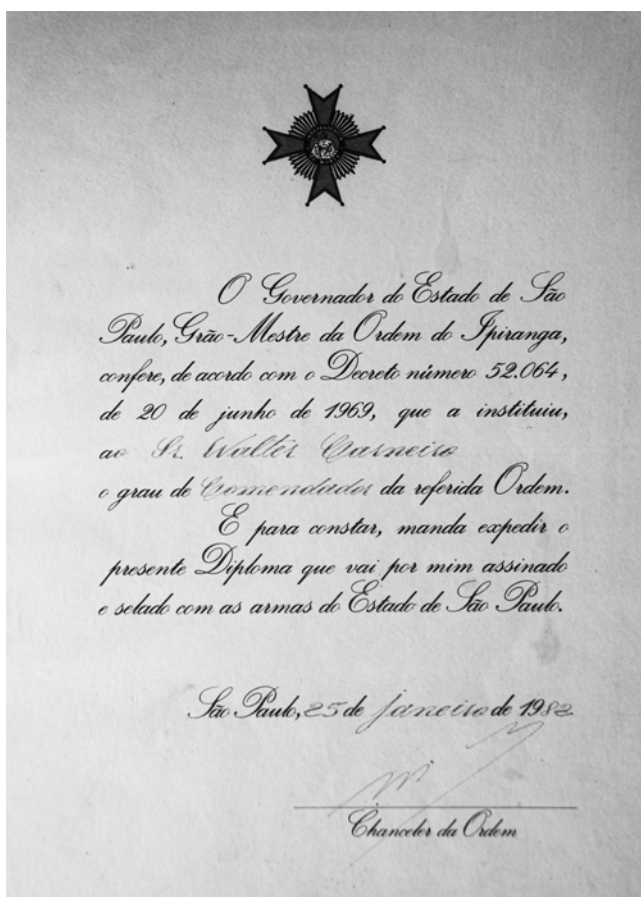 O Governador do Estado de São
Paulo, Grão-Mestre da Ordem do Ipiranga,
confere, de acordo com o Decreto número 52.064,
de 20 de junho de 1969, que a instituiu,
ao Sr. Walter Carneiro
o grau de Comendador da referida Ordem.
E para constar, manda expedir o
presente Diploma que vai por mim assinado
e selado com as armas do Estado de São Paulo.
São Paulo, 25 de janeiro de 1982
Chanceler da Ordem